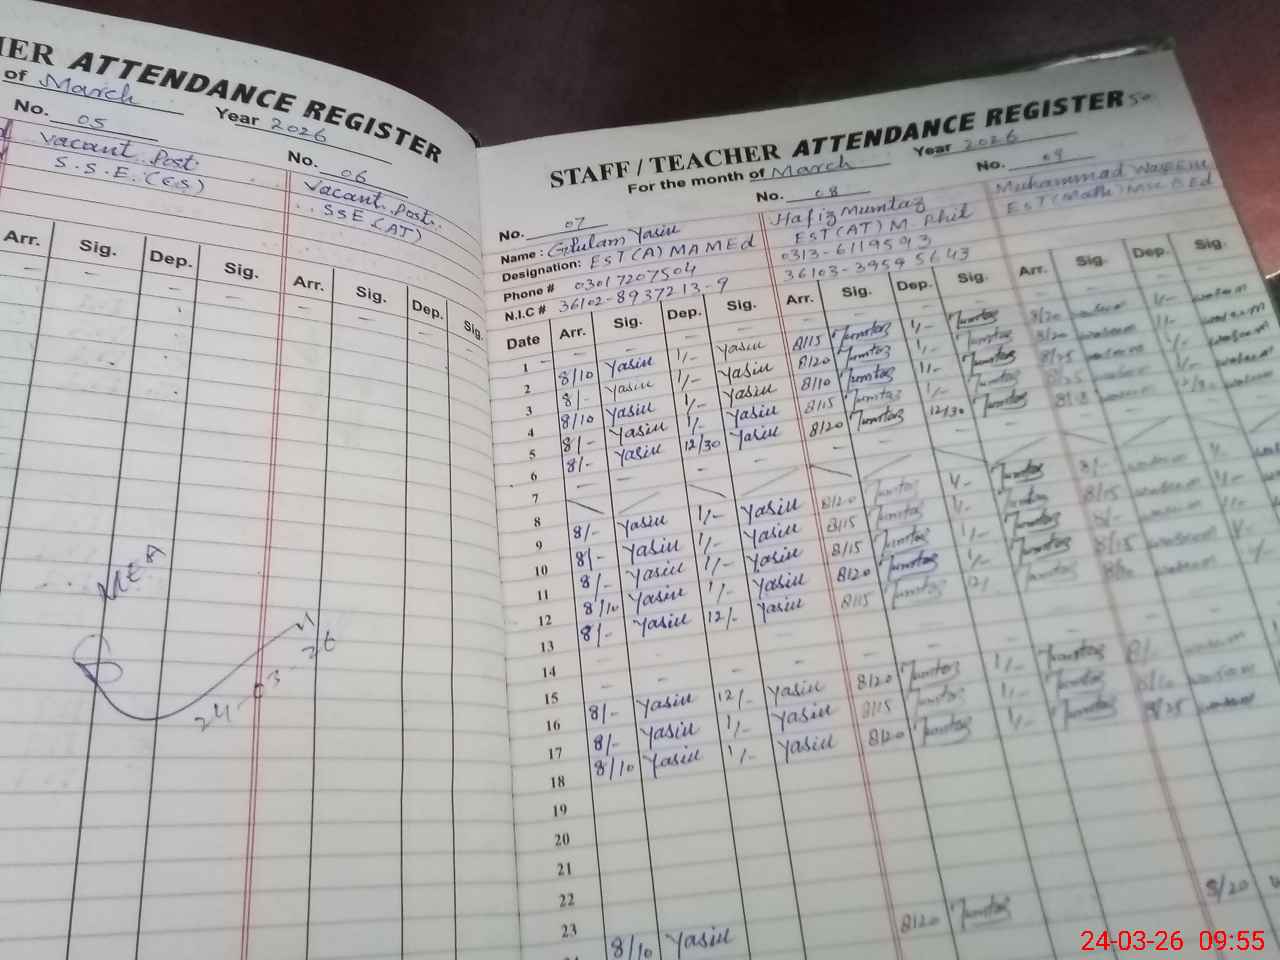 HER ATTENDANCE REGISTER
of March Year 2026
No. 05 No. 06
Vacant Post Vacant Post
S.S.E.(CS) SSE (AT)
Arr. Sig. Dep. Sig. Arr. Sig. Dep. Sig.
MEA
24-3-26
STAFF / TEACHER ATTENDANCE REGISTER
For the month of March Year 2026
No. 07 No. 08 No. 09
Name : Ghulam Yasin Hafiz Mumtaz Muhammad Waseem
Designation: EST (A) MA MEd EST (AT) M. Phil EST (Math) Msc B.Ed
Phone # 03017207504 0313-6119593
N.I.C # 36102-8937213-9 36103-3959564 3
Date Arr. Sig. Dep. Sig. Arr. Sig. Dep. Sig. Arr. Sig. Dep. Sig.
1 — — — —
2 8/10 Yasin 1/- Yasin 8/15 Mumtaz 1/- Mumtaz 8/20 waseem 1/- waseem
3 8/- Yasin 1/- Yasin 8/20 Mumtaz 1/- Mumtaz 8/20 waseem 1/- waseem
4 8/10 Yasin 1/- Yasin 8/10 Mumtaz 1/- Mumtaz 8/25 waseem 1/- waseem
5 8/- Yasin 1/- Yasin 8/15 Mumtaz 1/- Mumtaz 8/25 waseem 1/- waseem
6 8/- Yasin 12/30 Yasin 8/20 Mumtaz 12/30 Mumtaz waseem waseem
7 — — — —
8
9 8/- Yasin 1/- Yasin 8/20 Mumtaz 1/- Mumtaz 8/- waseem 1/-
10 8/- Yasin 1/- Yasin 8/15 Mumtaz 1/- Mumtaz 8/15 waseem 1/-
11 8/- Yasin 1/- Yasin 8/15 Mumtaz 1/- Mumtaz 8/- waseem 1/-
12 8/10 Yasin 1/- Yasin 8/20 Mumtaz 1/- Mumtaz 8/15 waseem 1/-
13 8/- Yasin 12/- Yasin 8/15 Mumtaz 12/- Mumtaz waseem 1/-
14
15 — — — —
16 8/- Yasin 12/- Yasin 8/20 Mumtaz 1/- Mumtaz 8/- waseem
17 8/- Yasin 1/- Yasin 8/15 Mumtaz 1/- Mumtaz 8/10 waseem
18 8/10 Yasin 1/- Yasin 8/20 Mumtaz 1/- Mumtaz 8/25 waseem
19
20
21
22
23
8/10 Yasin 8/20 Mumtaz 8/20
24-03-26 09:55